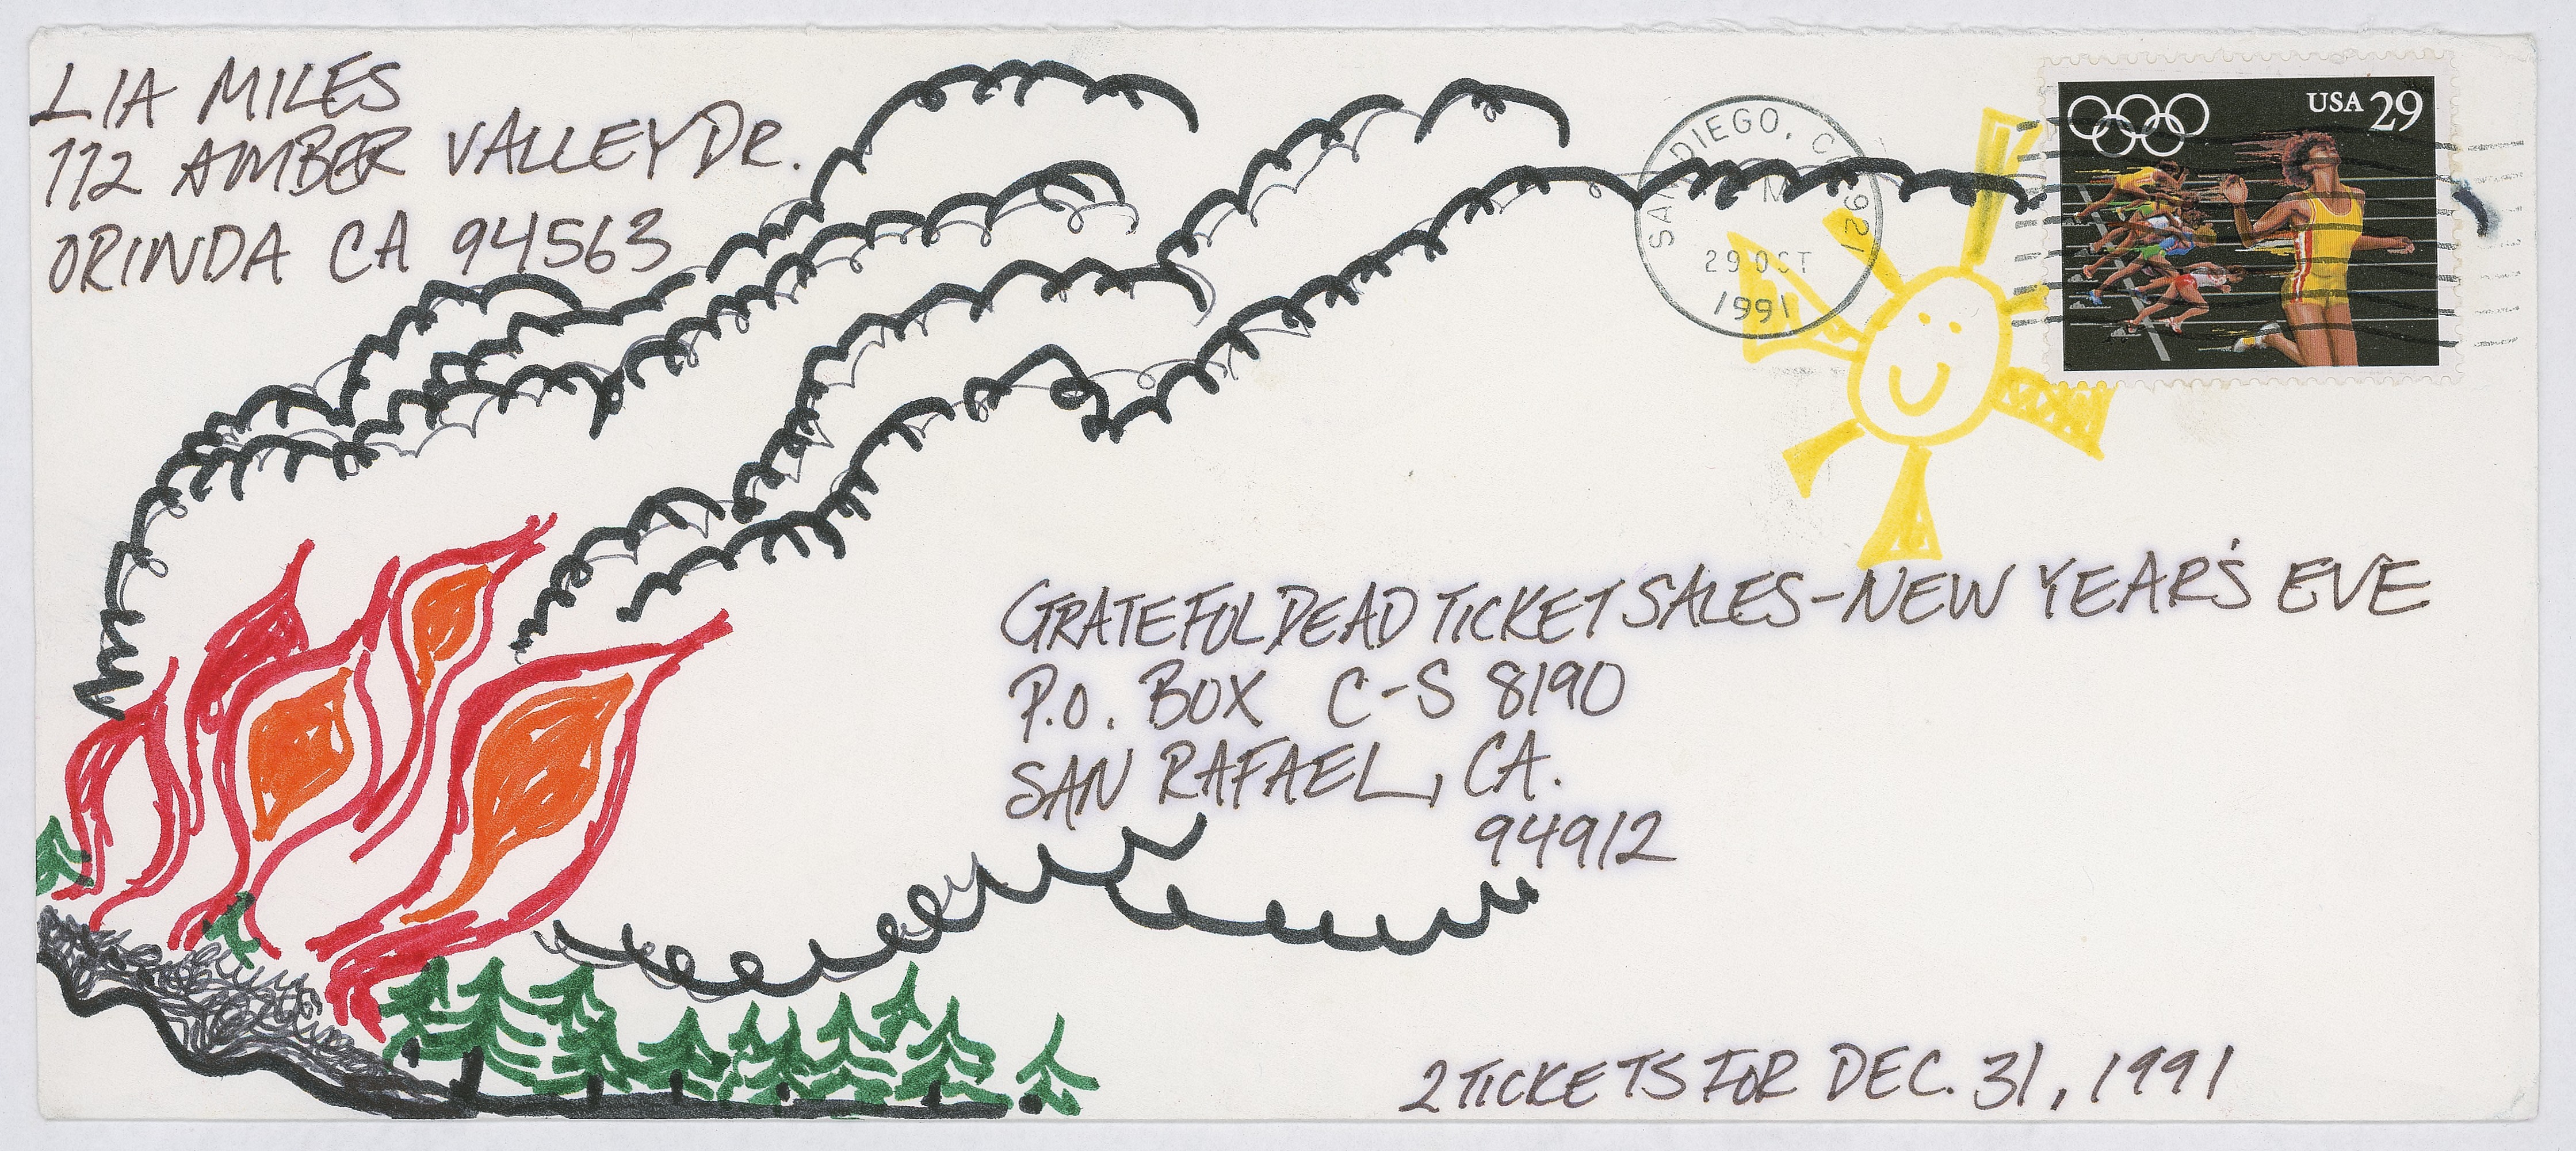 LIA MILES
112 AMBER VALLEY DR.
ORINDA CA 94563
SAN DIEGO, C 921
M
29 OCT
1991
USA 29
GRATEFUL DEAD TICKET SALES-NEW YEAR'S EVE
P.O. BOX C-S 8190
SAN RAFAEL, CA.
94912
2 TICKETS FOR DEC. 31, 1991